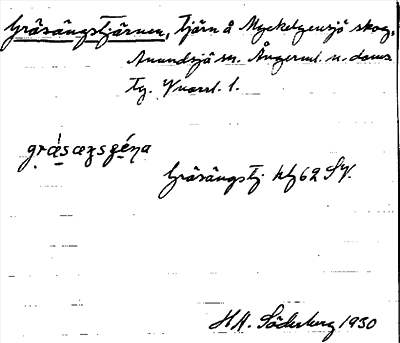 Gräsängstjärnen, Tjärn å Myckelgensjö skog,
Anundsjö sn. Ångerml. n. doms
Tg. Kvarnl. 1.
græ̀saŋsʒéṇa
Gräsängstj. kbl 62 SV.
H.H. Söderberg 1930